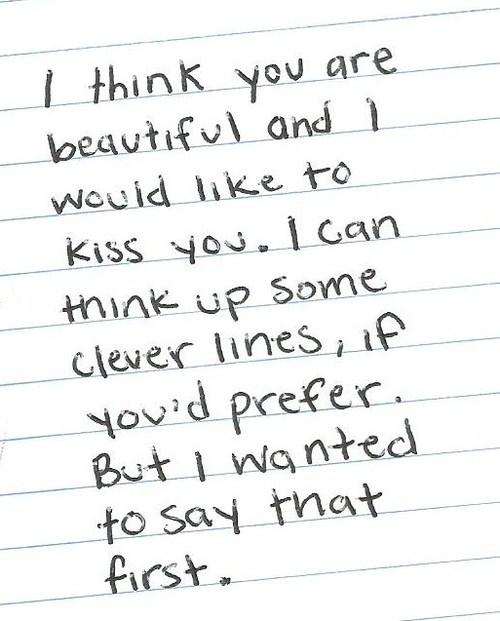 I think you are
beautiful and I
would like to
kiss you. I can
think up some
clever lines, if
you'd prefer.
But I wanted
to say that
first.